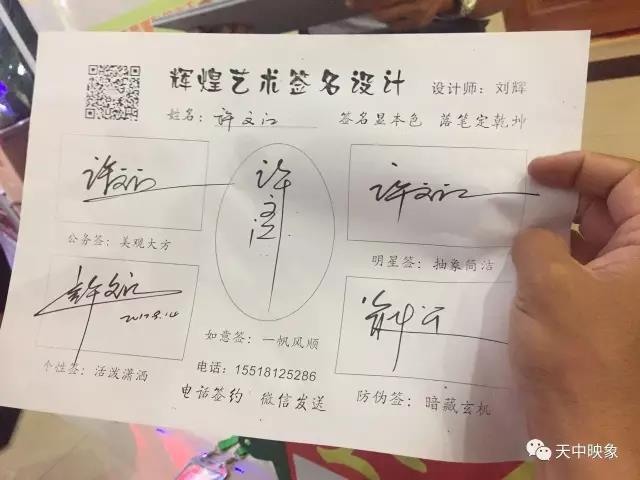 辉煌艺术签名设计
设计师：刘辉
姓名：许文江
签名显本色 落笔定乾坤
许文江
许文江
许文江
公务签：美观大方
明星签：抽象简洁
许文江
2017.9.14
如意签：一帆风顺
个性签：活泼潇洒
电话：15518125286
防伪签：暗藏玄机
电话签约 微信发送
天中映象